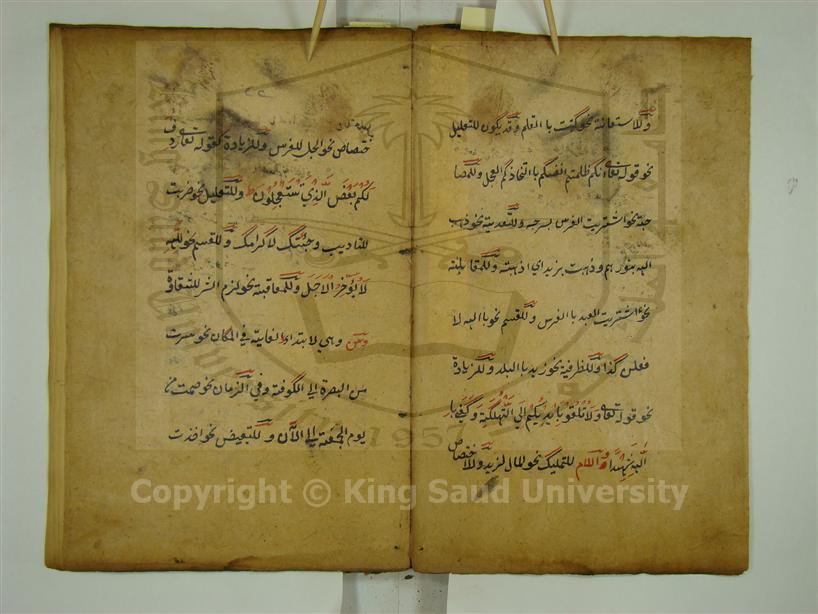 وللاستعانة نحو كتبت بالقلم وقد يكون للتعليل
نحو قوله تعالى انكم ظلمتم انفسكم باتخاذكم العجل وللمصا
حبة نحو اشتريت الفرس بسرجه وللتعدية نحو ذهب
الله بنورهم وذهبت بزيد اي اذهبته وللمقابلة
نحو اشتريت العبد بالفرس وللقسم نحو بالله لا
فعلن كذا وللظرفية نحو زيد بالبلد وللزيادة
نحو قوله تعالى ولا تلقوا بايديكم الى التهلكة وكفى با
الله شهيدا واللام للتمليك نحو المال لزيد وللاختصاص
ختصاص نحو الجل للفرس وللزيادة كقوله تعالى ردف
لكم بعض الذي تستعجلون وللتعليل نحو ضربت
للتاديب وجئتك لاكرامك وللقسم نحو لله
لا يؤخر الاجل وللمعاقبة نحو لزم الشر للشقاوة
ومن وهي لابتداء الغاية في المكان نحو سرت
من البصرة الى الكوفة وفي الزمان نحو صمت من
يوم الجمعة الى الآن وللتبعيض نحو اخذت
Copyright © King Saud University
1957